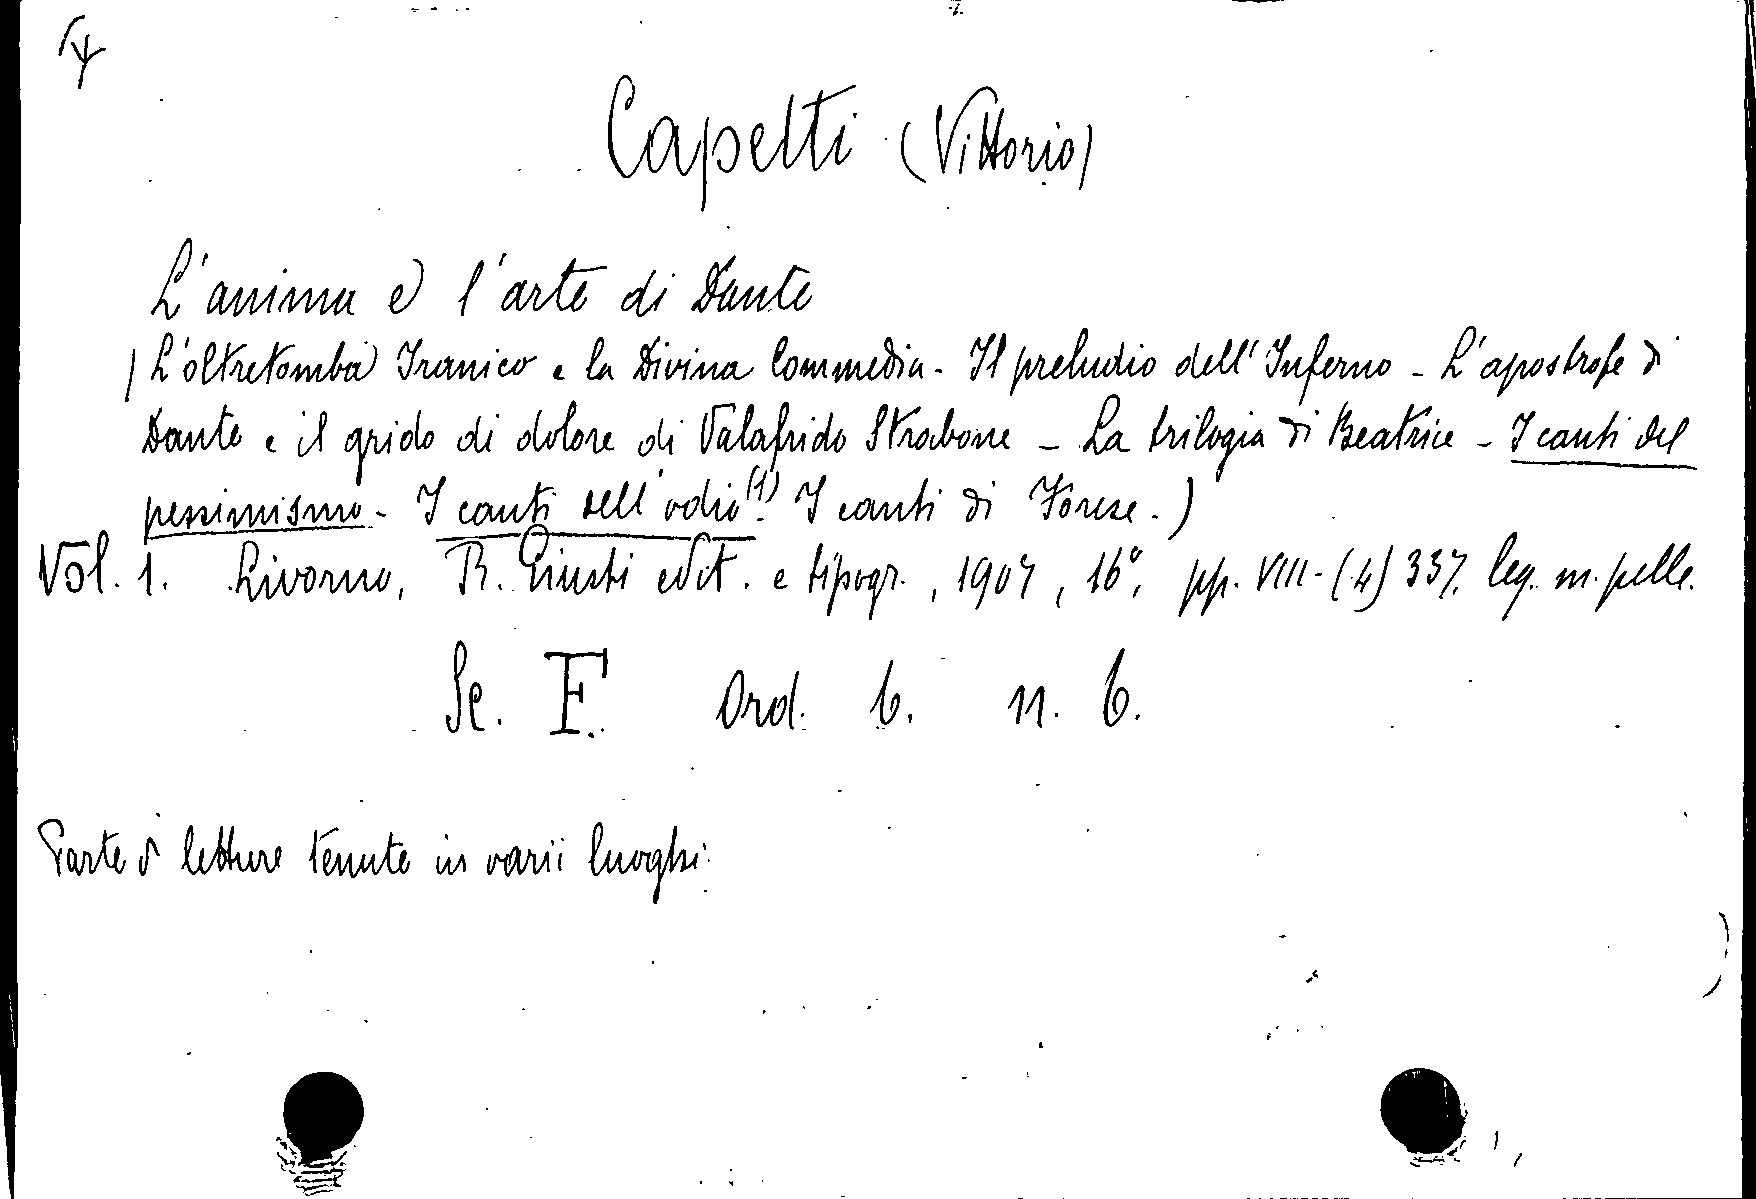 Capetti (Vittorio)
L'anima e l'arte di Dante
(L'oltretomba Iranico e la Divina Commedia - Il preludio dell'Inferno - L'apostrofe di
Dante e il grido di dolore di Valafrido Strabone - La trilogia di Beatrice - I canti del
pessimismo - I canti dell'odio (1). I canti di Forese.)
Vol. 1. Livorno, R. Giusti edit. e tipogr., 1907, 16°, pp. VIII-(4) 337. leg. m. pelle.
Se. F. Ord. 6. n. 6.
Parte di letture tenute in varii luoghi.